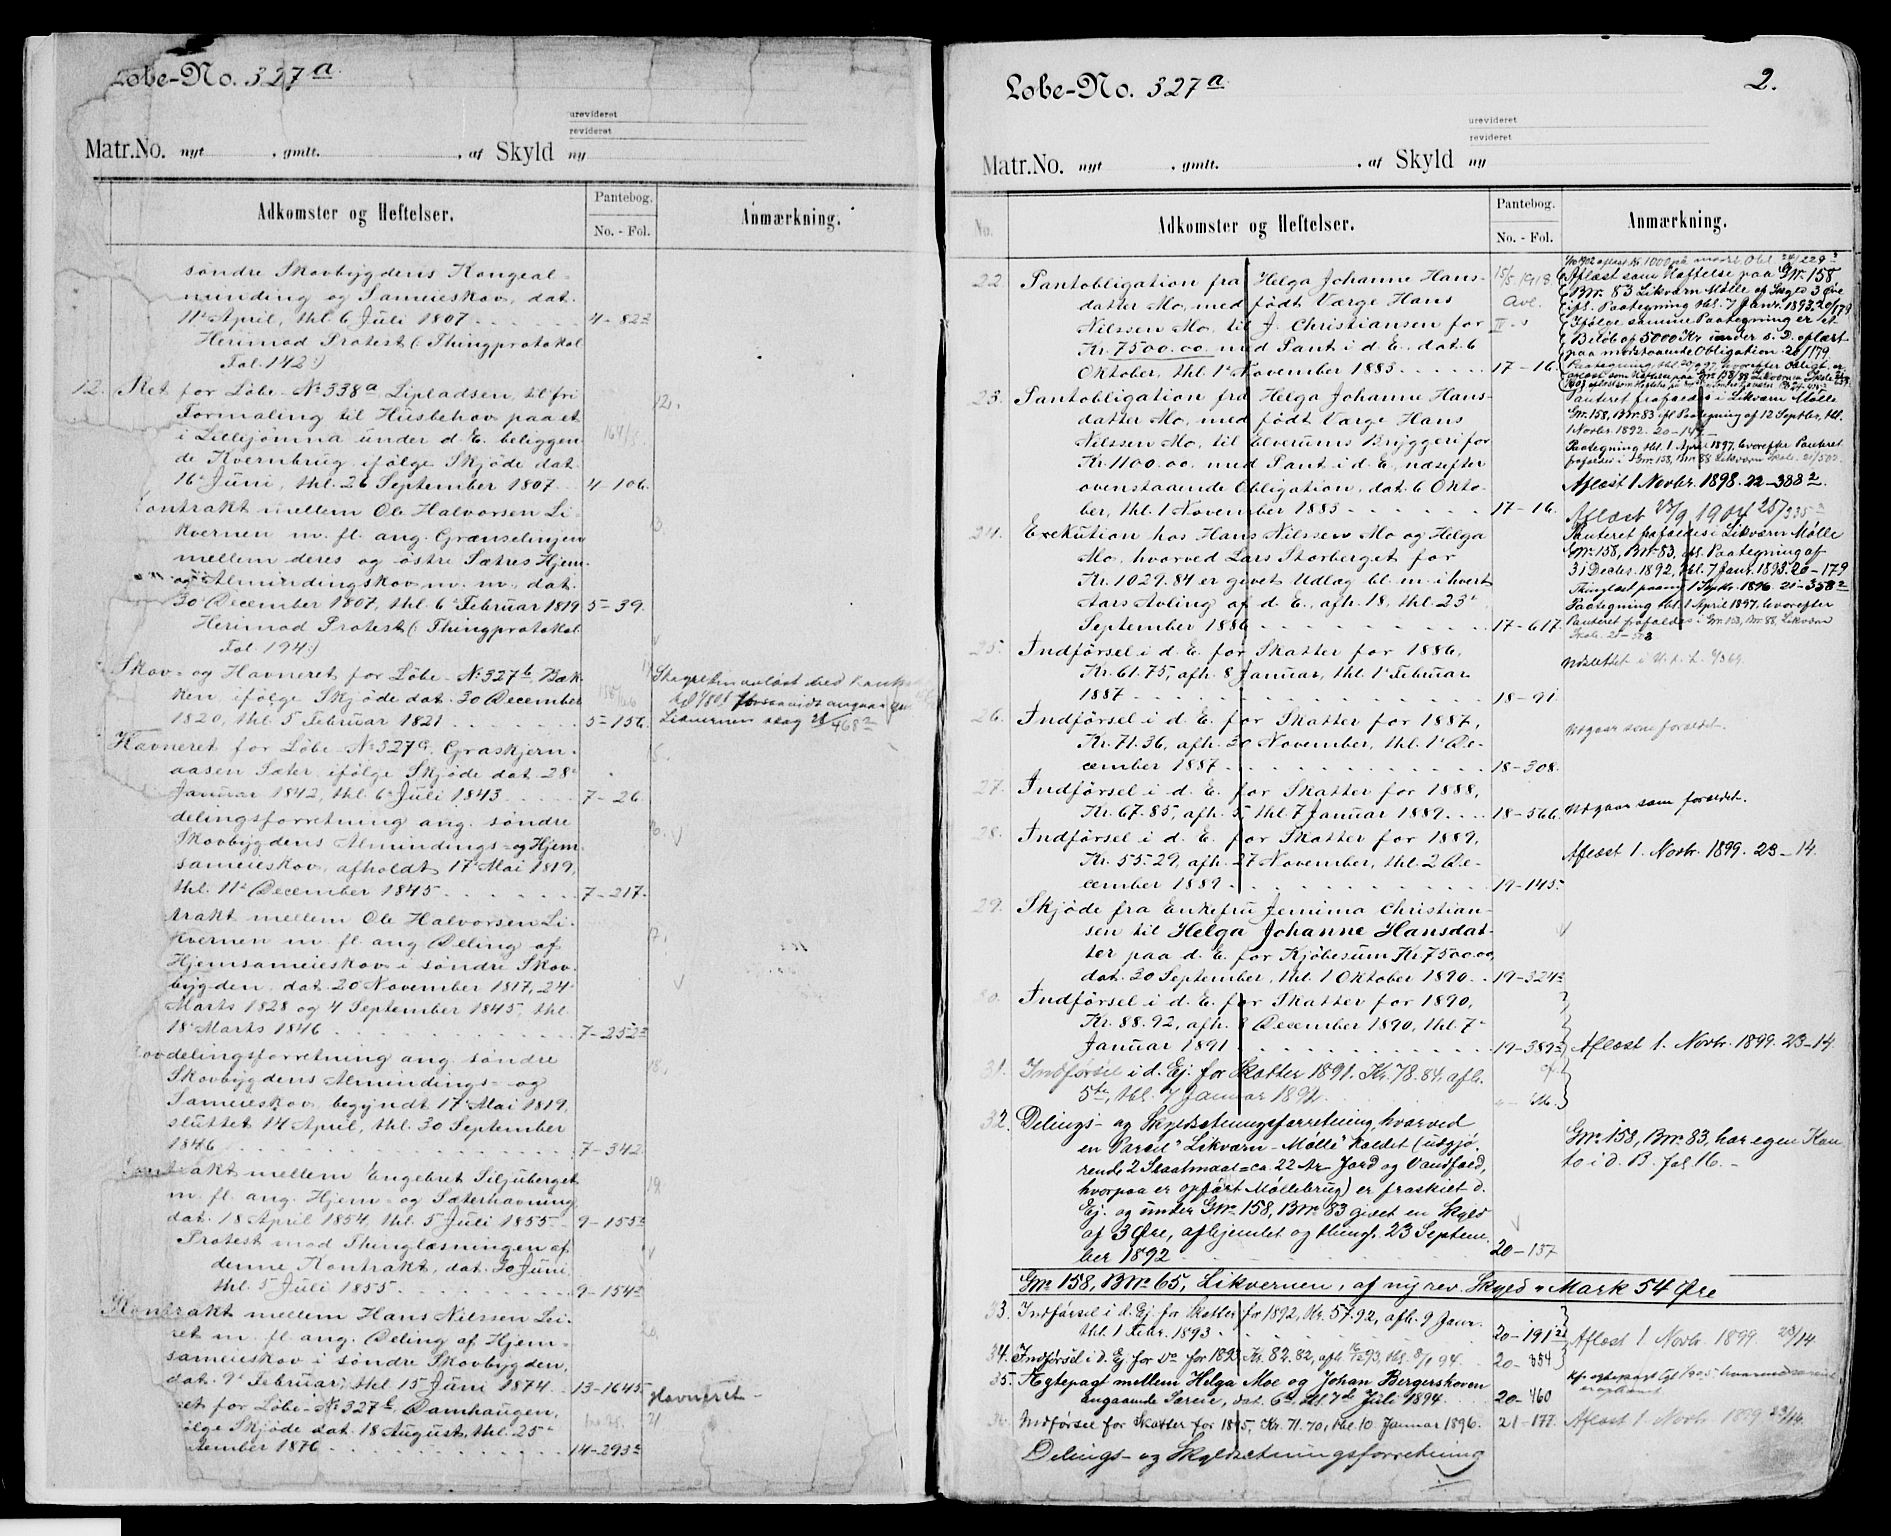 Løbe-No. 327a
urevideret
revideret
Matr.No. nyt . gmlt. . af Skyld ny
Adkomster og Heftelser.
Pantebog.
No. - Fol.
Anmærkning.
søndre Skovbygdens Kongeal-
munding og Sameieskov, dat.
11te April, thl. 6 Juli 1807 4-82
Herimod Protest (: Thingprotokol
Fol. 142:)
12. Ret for Løbe-No 338a Lipladsen, til fri
Formaling til Husbehov paa et
i Lilljømna under d. E. beliggen-
de Kvernbrug, ifølge Skjøde dat.
16de Juni, thl. 26 September 1807 4-106.
Kontrakt mellem Ole Halvorsen Li-
kvernen m. fl. ang. Grænselinjen
mellem deres og østre Sætres Hjem-
og Almindingskov m. m., dat.
30 December 1807, thl. 6te Februar 1819 5-39.
Herimod Protest (: Thingprotokol
Fol. 194:)
Skov- og Havneret for Løbe-No 327b, Bak-
ken, ifølge Skjøde dat. 30 December
1820, thl. 5 Februar 1821 5-156.
Havneret for Løbe-No 327c, Graskjern-
aasen Sæter, ifølge Skjøde dat. 28de
Januar 1842, thl. 6te Juli 1843 7-26.
delingsforretning ang. søndre
Skovbygdens Almindings- og Hjem-
sameieskov, afholdt 17de Mai 1819,
thl. 11te December 1845 7-217.
trakt mellem Ole Halvorsen Li-
kvernen m. fl. ang. Deling af
Hjemsameieskov i søndre Skov-
bygden, dat. 20 November 1817, 24
Marts 1828 og 4 September 1845, thl.
18de Marts 1846 7-252
ovdelingsforretning ang. søndre
Skovbygdens Almindings- og
Sameieskov, begyndt 17de Mai 1819,
sluttet 14 April, thl. 30 September
1846 7-342.
Kontrakt mellem Engebret Siljuberget
m. fl. ang. Hjem- og Sæterhavning
dat. 18 April 1854, thl. 5 Juli 1855 9-155
Protest mod Thinglæsningen af
denne Kontrakt, dat. 30 Juni,
thl. 5 Juli 1855 9-154
Kontrakt mellem Hans Nilssen Li-
ret m. fl. ang. Deling af Hjem-
sameieskov i søndre Skovbygden,
dat. 9de Februar, thl. 15 Juni 1874 13-1645
Havneret
ret for Løbe-No 327 Damhaugen,
ølge Skjøde dat. 18 August, thl. 25de
tember 1876 14-293
Løbe-No. 327a
2.
urevideret
revideret
Matr.No. nyt . gmlt. . af Skyld ny
No.
Adkomster og Heftelser.
Pantebog.
No. - Fol.
Anmærkning.
22. Pantobligation fra Helga Johanne Hans-
datter Mo, med født Værge Hans
Nilssen Mo, til J. Christiansen for
Kr. 7500.00 med Pant i d. E., dat. 6
Oktober, thl. 1ste November 1885 17-16.
Aflæst som Hæftelse paa Gnr. 158
Bnr. 83 Likværn Mølle af Skyld 3 Øre
ifl. Paategning thl. 7 Janr. 1893. 20/179
Ifølge samme Paategning er et
Beløb af 5000 Kr under s. D. aflæst
paa modstaaende Obligation. 20/179
23. Pantobligation fra Helga Johanne Hans-
datter Mo, med født Værge Hans
Nilssen Mo, til Elverums Bryggeri for
Kr. 1100.00 med Pant i d. E., næsefter
ovenstaaende Obligation, dat. 6 Okto-
ber, thl. 1 November 1885 17-16.
Panteret frafaldes i Likværn Mølle
Gnr. 158, Bnr. 83 ifl. Paategning af 12 Septbr, thl.
1 Novbr. 1892. 20-147
Paategning thl. 1 April 1897, hvorefter Panteret
Aflæst 1 Novbr. 1898. 22-388
24. Exekution hos Hans Nilssen Mo og Helga
Mo, hvorved Lars Storberget for
Kr. 1029.84 er givet Udlæg bl. m. i hvert
Aars Avling af d. E., afh. 18, thl. 23de
September 1886 17-617.
Panteret frafaldes i Likværn Mølle
Gnr. 158, Bnr. 83, ifl. Paategning af
31 Decbr. 1892, thl. 7 Janr. 1893. 20-179
Thinglæst paany 1 Septbr. 1896. 21-358
Paategning thl. 1 April 1897, hvorefter
25. Indførsel i d. E. for Skatter for 1886,
Kr. 61.75, afh. 8 Januar, thl. 1ste Februar
1887 18-91
26. Indførsel i d. E. for Skatter for 1887,
Kr. 71.36, afh. 30 November, thl. 1ste De-
cember 1887 18-308.
Udgaar som forældet.
27. Indførsel i d. E. for Skatter for 1888,
Kr. 67.85, afh. 5, thl. 7 Januar 1889 18-566.
Udgaar som forældet.
28. Indførsel i d. E. for Skatter for 1889,
Kr. 55.29, afh. 27 November, thl. 2 De-
cember 1889 19-145
Aflæst 1. Novbr. 1899. 23-14.
29. Skjøde fra Enkefru Jemima Christian-
sen til Helga Johanne Hansdat-
ter paa d. E. for Kjøbesum Kr. 7500.00,
dat. 30 September, thl. 1 Oktober 1890 19-324
30. Indførsel i d. E. for Skatter for 1890,
Kr. 88.92, afh. 8 December 1890, thl. 7de
Januar 1891 19-389
Aflæst 1. Novbr. 1899. 23-14.
31. Indførsel i d. Ej. for Skatter 1891. Kr. 78.84, afh.
5te, thl. 7 Januar 1892
32. Delings- og Skyldsætningsforretning, hvorved
en Parcel "Likværn-Mølle" kaldet (udgjø-
rende 2 Skaalmaal = ca. 22 Ar Jord og Vandfald,
hvorpaa er opført Møllebrug) er fraskilt d.
Ej. og under Gnr. 158, Bnr. 83 givet en Skyld
af 3 Øre, afhjemlet og thingl. 23 Septem-
ber 1892 20-137
Gnr. 158, Bnr. 83, har egen Kon-
to i d. B. fol. 16.-
Gnr. 158, Bnr. 65, Likvernen, af ny rev. Skyld " Mark 54 Øre
33. Indførsel i d. Ej. for Skatter for 1892, Kr. 57.92, afh. 9 Janr.
thl. 1 Febr. 1893 20-191
Aflæst 1 Novbr. 1899. 23/14
34. Indførsel i d. Ej. for Do for 1893 Kr. 82.82, afh. 16/12 93, thl. 8/1 94. 20-354
35. Ægtepagt mellem Helga Moe og Johan Bergerskoven
angaaende Særeie, dat. 6te, thl. 7de Juli 1894 20-460
36. Indførsel for Skatter for 1895, Kr. 71.70, thl. 10 Januar 1896. 21-177.
Aflæst 1 Novbr. 1899 23/14.
Delings- og Skyldsætningsforretning